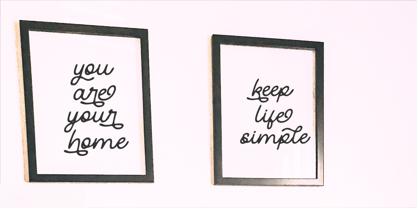 you
are
your
home
keep
life
simple